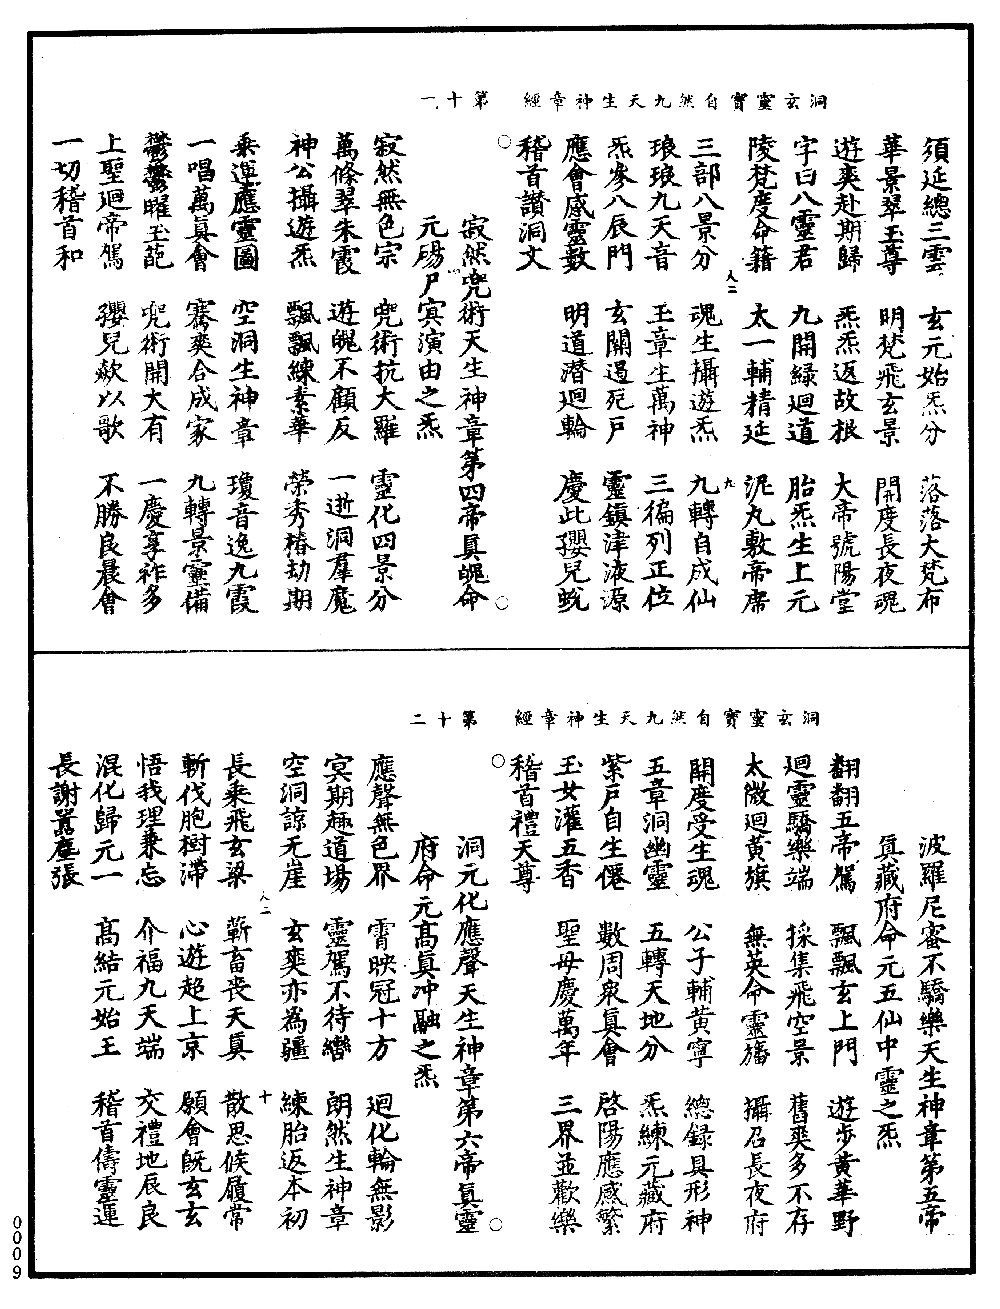 洞玄靈寶自然九天生神章經　第十一
須延總三雲　玄元始炁分　落落大梵布
華景翠玉尊　明梵飛玄景　開度長夜魂
遊爽赴期歸　炁炁返故根　大帝號陽堂
字曰八靈君　九開綠迴道　胎炁生上元
陵梵度命籍　太一輔精延　泥丸敷帝席
人二　九
三部八景分　魂生攝遊炁　九轉自成仙
琅琅九天音　玉章生萬神　三徧列正位
炁參八辰門　玄關遏死戸　靈鎮津液源
應會感靈數　明道潛迴輪　慶此孾兒蛻
稽首讃洞文
○　寂然兠術天生神章第四帝真魄命　○
元碭尸㝠演由之炁
寂然無色宗　兠術抗大羅　靈化四景分
萬條翠朱霞　遊魄不顧反　一逝洞羣魔
神公攝遊炁　飄飄練素華　榮秀椿劫期
乗運應靈圖　空洞生神章　瓊音逸九霞
一唱萬真會　騫爽合成家　九轉景靈備
鬱鬱曜玉葩　兠術開大有　一慶享祚多
上聖迴帝駕　孾兒歘以歌　不勝良晨會
一切稽首和
洞玄靈寶自然九天生神章經　第十二
波羅尼審不驕樂天生神章第五帝
真藏府命元五仙中靈之炁
翻翻五帝駕　飄飄玄上門　遊步黃華野
迴靈驕樂端　採集飛空景　舊爽多不存
太微迴黃旗　無英命靈旛　攝召長夜府
開度受生魂　公子輔黃寧　總錄具形神
五章洞幽靈　五轉天地分　炁練元藏府
紫戸自生僊　數周衆真會　啓陽應感繁
玉女灌五香　聖母慶萬年　三界並歡樂
稽首禮天尊
○　洞元化應聲天生神章第六帝真靈　○
府命元髙真冲融之炁
應聲無色界　霄映冠十方　迴化輪無影
㝠期趣道場　靈駕不待轡　朗然生神章
空洞諒无崖　玄爽亦為疆　練胎返本初
人二　十
長乗飛玄梁　蘄畜䘮天真　散思候履常
斬伐胞樹滯　心遊超上京　願會既玄玄
悟我理兼忘　介福九天端　交禮地辰良
混化歸元一　髙結元始王　稽首儔靈運
長謝嚚塵張
0009